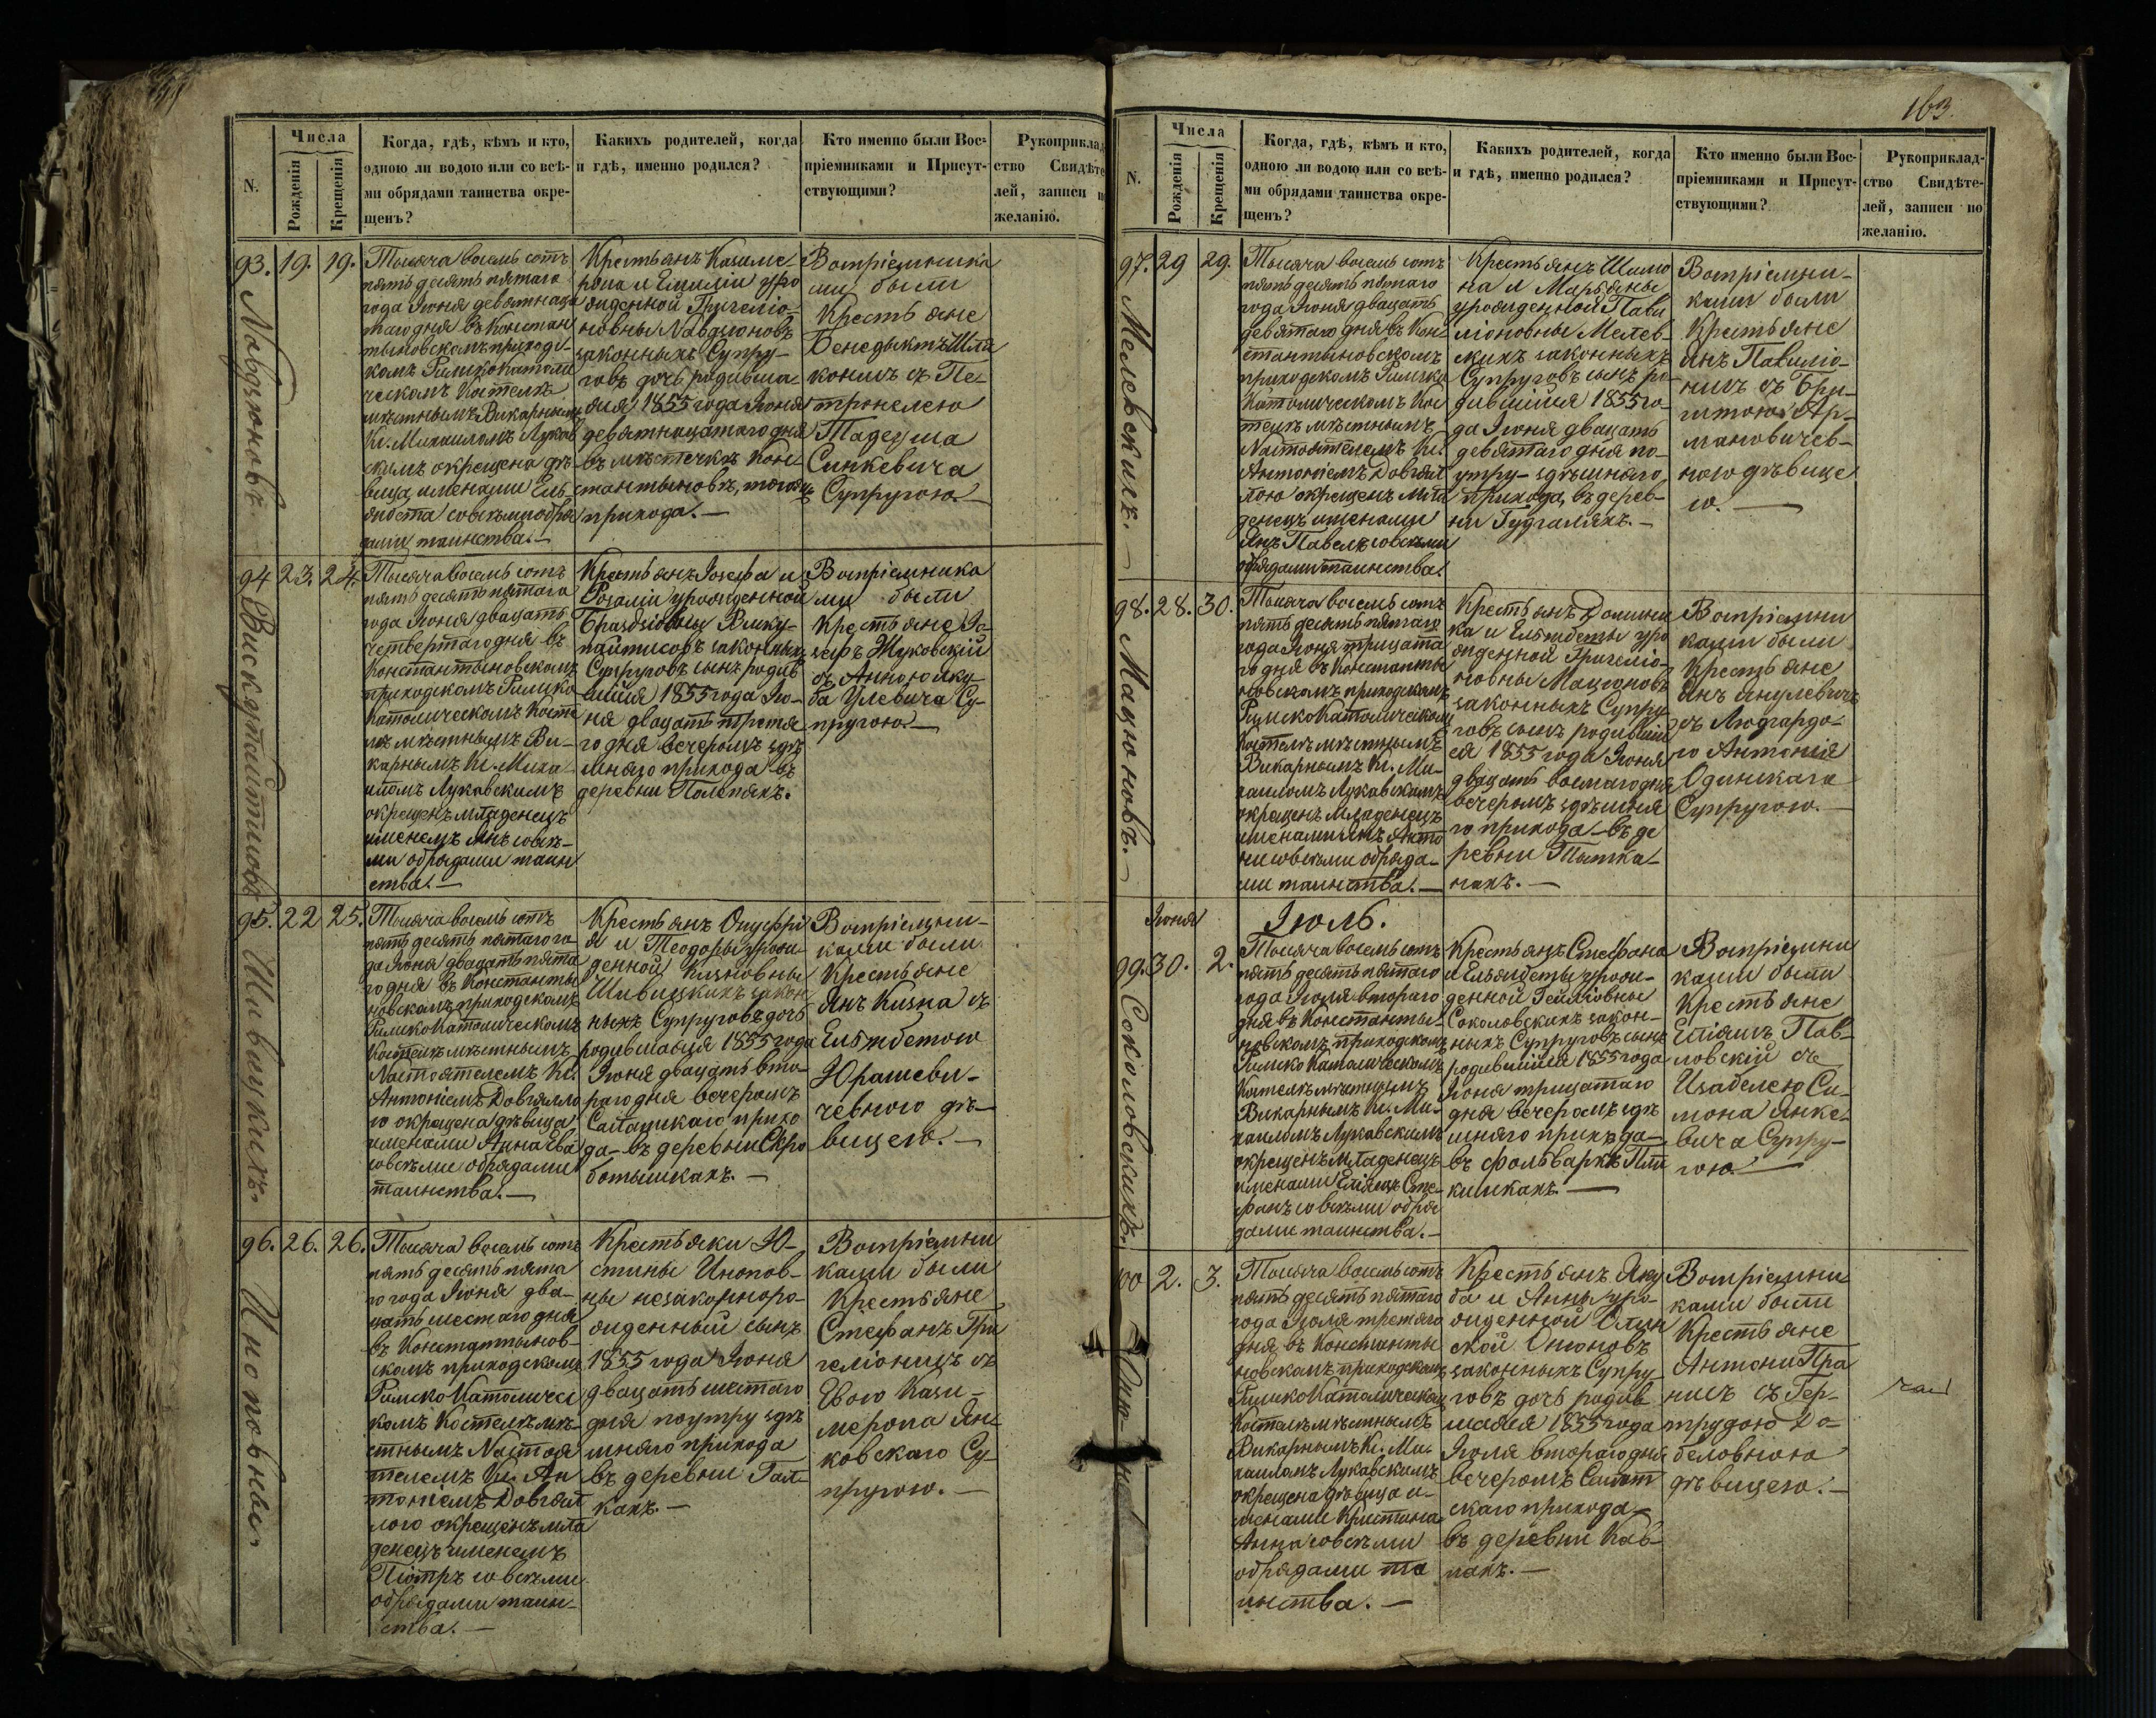 163.
N.
Числа
Рожденія
Крещенія
Когда, гдѣ, кѣмъ и кто,
одною ли водою или со всѣ-
ми обрядами таинства окре-
щенъ?
Какихъ родителей, когда
и гдѣ, именно родился?
Кто именно были Вос-
пріемниками и Присут-
ствующими?
Рукоприклад
ство Свидѣте
лей, записи
желанію.
93.
19.
19.
Тысяча восемь сотъ
пять десять пятаго
года Іюня девятнаца
таго дня въ Констан
тыновскомъ приходс-
комъ Римско Католи
ческомъ Костелѣ
мѣстнымъ Викарнымъ
Кс. Михаиломъ Лукав
скимъ окрещена дѣ-
вица именами Ель-
жбета со всѣми обря
дами таинства.—
Крестьянъ Казиме
рона и Емиліи уро
жденной Григеліо-
новны Навдзюновъ
законныхъ Супру-
говъ дочь родивша-
яся 1855 года Іюня
девятнацатаго дня
въ мѣстечкѣ Кон-
стантыновѣ, тогожъ
прихода.—
Вотріемника
ми были
Крестьяне
Бенедыктъ Шля
конисъ съ Пе-
тронелею
Тадеуша
Синкевича
Супругою.—
94
23.
24.
Тысяча восемь сотъ
пять десять пятаго
года Іюня двацать
четвертаго дня въ
Константыновскомъ
приходскомъ Римско
Католическомъ Косте
лѣ мѣстнымъ Ви-
карнымъ Кс. Миха-
иломъ Лукавскимъ
окрещенъ младенецъ
именемъ Янъ со всѣ-
ми обрядами таин
ства.—
Крестьянъ Іозефа и
Розаліи урожденной
Браздіовны Виску-
пайтисовъ законныхъ
Супруговъ сынъ родив
шійся 1855 года Ію-
ня двацать третья
го дня вечеромъ здѣ
шняго прихода въ
деревни Полепяхъ.
Вотріемника
ми были
Крестьяне Іо-
зефъ Жуковскій
съ Анною Яку-
ба Улевича Су-
пругою.—
95.
22
25.
Тысяча восемь сотъ
пять десять пятаго го
да Іюня двацать пята
го дня въ Константы
новскомъ приходскомъ
Римско Католическомъ
Костелѣ мѣстнымъ
Настоятелемъ Кс.
Антоніемъ Довгялло
ю окрещена дѣвица
именами Анна Ева
со всѣми обрядами
таинства.—
Крестьянъ Онуфрі
я и Теодоры урож-
денной Кизновны
Шивицкихъ закон
ныхъ Супруговъ дочь
родившаяся 1855 года
Іюня двацать вто-
раго дня вечеромъ
прихо
да— въ деревни Скро
ботышкахъ.—
Вотріемни-
ками были
Крестьяне
Янъ Кизна съ
Ельжбетою
Юрашеви-
чевною дѣ-
вицею.—
96.
26.
26.
Тысяча восемь сотъ
пять десять пята
го года Іюня два-
цать шестаго дня
въ Константынов-
скомъ приходскомъ
Римско Католичес
комъ Костелѣ мѣ-
стнымъ Настоя
телемъ Кс. Ан
тоніемъ Довгял
лою окрещенъ мла
денецъ именемъ
Піотръ со всѣми
обрядами таин-
ства.—
Крестьянки Ю-
стины Инопов-
ны незаконноро-
жденный сынъ
1855 года Іюня
двацать шестаго
дня поутру здѣ
шняго прихода
въ деревни Гал-
кахъ.—
Вотріемни
ками были
Крестьяне
Стефанъ Гри
геліонисъ съ
Евою Кази-
мерона Ян-
ковскаго Су-
пругою.—
Навдзюновъ
Вискупайтисовъ
Шивицкихъ.
Иноповны
N.
Числа
Рожденія
Крещенія
Когда, гдѣ, кѣмъ и кто,
одною ли водою или со всѣ-
ми обрядами таинства окре-
щенъ?
Какихъ родителей, когда
и гдѣ, именно родился?
Кто именно были Вос-
пріемниками и Присут-
ствующими?
Рукоприклад-
ство Свидѣте-
лей, записи по
желанію.
97.
29
29.
Тысяча восемь сотъ
пять десять пятаго
года Іюня двацать
девятаго дня въ Кон-
стантыновскомъ
приходскомъ Римско
Католическомъ Кос
телѣ мѣстнымъ
Настоятелемъ Кс.
Антоніемъ Довгял
лою окрещенъ мла
денецъ именами
Янъ Павелъ со всѣми
обрядами таинства.
Крестьянъ Шимо
на и Марьяны
урожденной Пави
ліоновны Мелев-
скихъ законныхъ
Супруговъ сынъ ро-
дившійся 1855 го-
да Іюня двацать
девятаго дня по-
утру— здѣшняго
прихода, въ дерев-
ни Гудзаляхъ.—
Вотріемни-
ками были
Крестьяне
Янъ Павиліо-
нисъ съ Бри-
гитою Яр-
мановичев-
ною дѣвице
ю.—
98.
28.
30.
Тысяча восемь сотъ
пять десять пятаго
года Іюня трицата
го дня въ Константы
новскомъ приходскомъ
Римско Католическомъ
Костелѣ мѣстнымъ
Викарнымъ Кс. Ми-
хаиломъ Лукавскимъ
окрещенъ Младенецъ
именами Янъ Анто
ни со всѣми обряда-
ми таинства.—
Крестьянъ Домини
ка и Ельжбеты уро
жденной Григеліо-
новны Мацюновъ
законныхъ Супру-
говъ сынъ родившій
ся 1855 года Іюня
двацать восмаго дня
вечеромъ здѣшня
го прихода— въ де
ревни Пышка-
нахъ.—
Вотріемни
ками были
Крестьяне
Янъ Янулевичъ
съ Людгардо-
ю Антонія
Одинскаго
Супругою.—
Іюня
Іюль.
99.
30.
2.
Тысяча восемь сотъ
пять десять пятаго
года Іюля втораго
дня въ Константы-
новскомъ приходскомъ
Римско Католическомъ
Костелѣ мѣстнымъ
Викарнымъ Кс. Ми-
хаиломъ Лукавскимъ
окрещенъ младенецъ
именами Еліяшъ Сте-
фанъ со всѣми обря
дами таинства.—
Крестьянъ Стефана
и Ельжбеты урож-
денной
Соколовскихъ закон-
ныхъ Супруговъ сынъ
родившійся 1855 года
Іюня трицатаго
дня вечеромъ здѣ
шняго прихода—
въ фольваркѣ Пли
кишкахъ.—
Вотріемни
ками были
Крестьяне
Еліяшъ Пав-
ловскій съ
Изабелею Си-
мона Янке-
вича Супру-
гою.—
100
2.
3.
Тысяча восемь сотъ
пять десять пятаго
года Іюля третяго
дня въ Константы
новскомъ приходскомъ
Римско Католическомъ
Костелѣ мѣстнымъ
Викарнымъ Кс. Ми-
хаиломъ Лукавскимъ
окрещена дѣвица и-
менами Кристина
Анна со всѣми
обрядами та
инства.—
Крестьянъ Яку
ба и Анны уро-
жденной
ской Онюновъ
законныхъ Супру-
говъ дочь родив
шаяся 1855 года
Іюля втораго дня
вечеромъ
скаго прихода—
въ деревни Кав-
нахъ.—
Вотріемни
ками были
Крестьяне
Антони Пра
нисъ съ Гер-
трудою До-
беловною
дѣвицею.—
Мелевскихъ.—
Мацюновъ.—
Соколовскихъ.